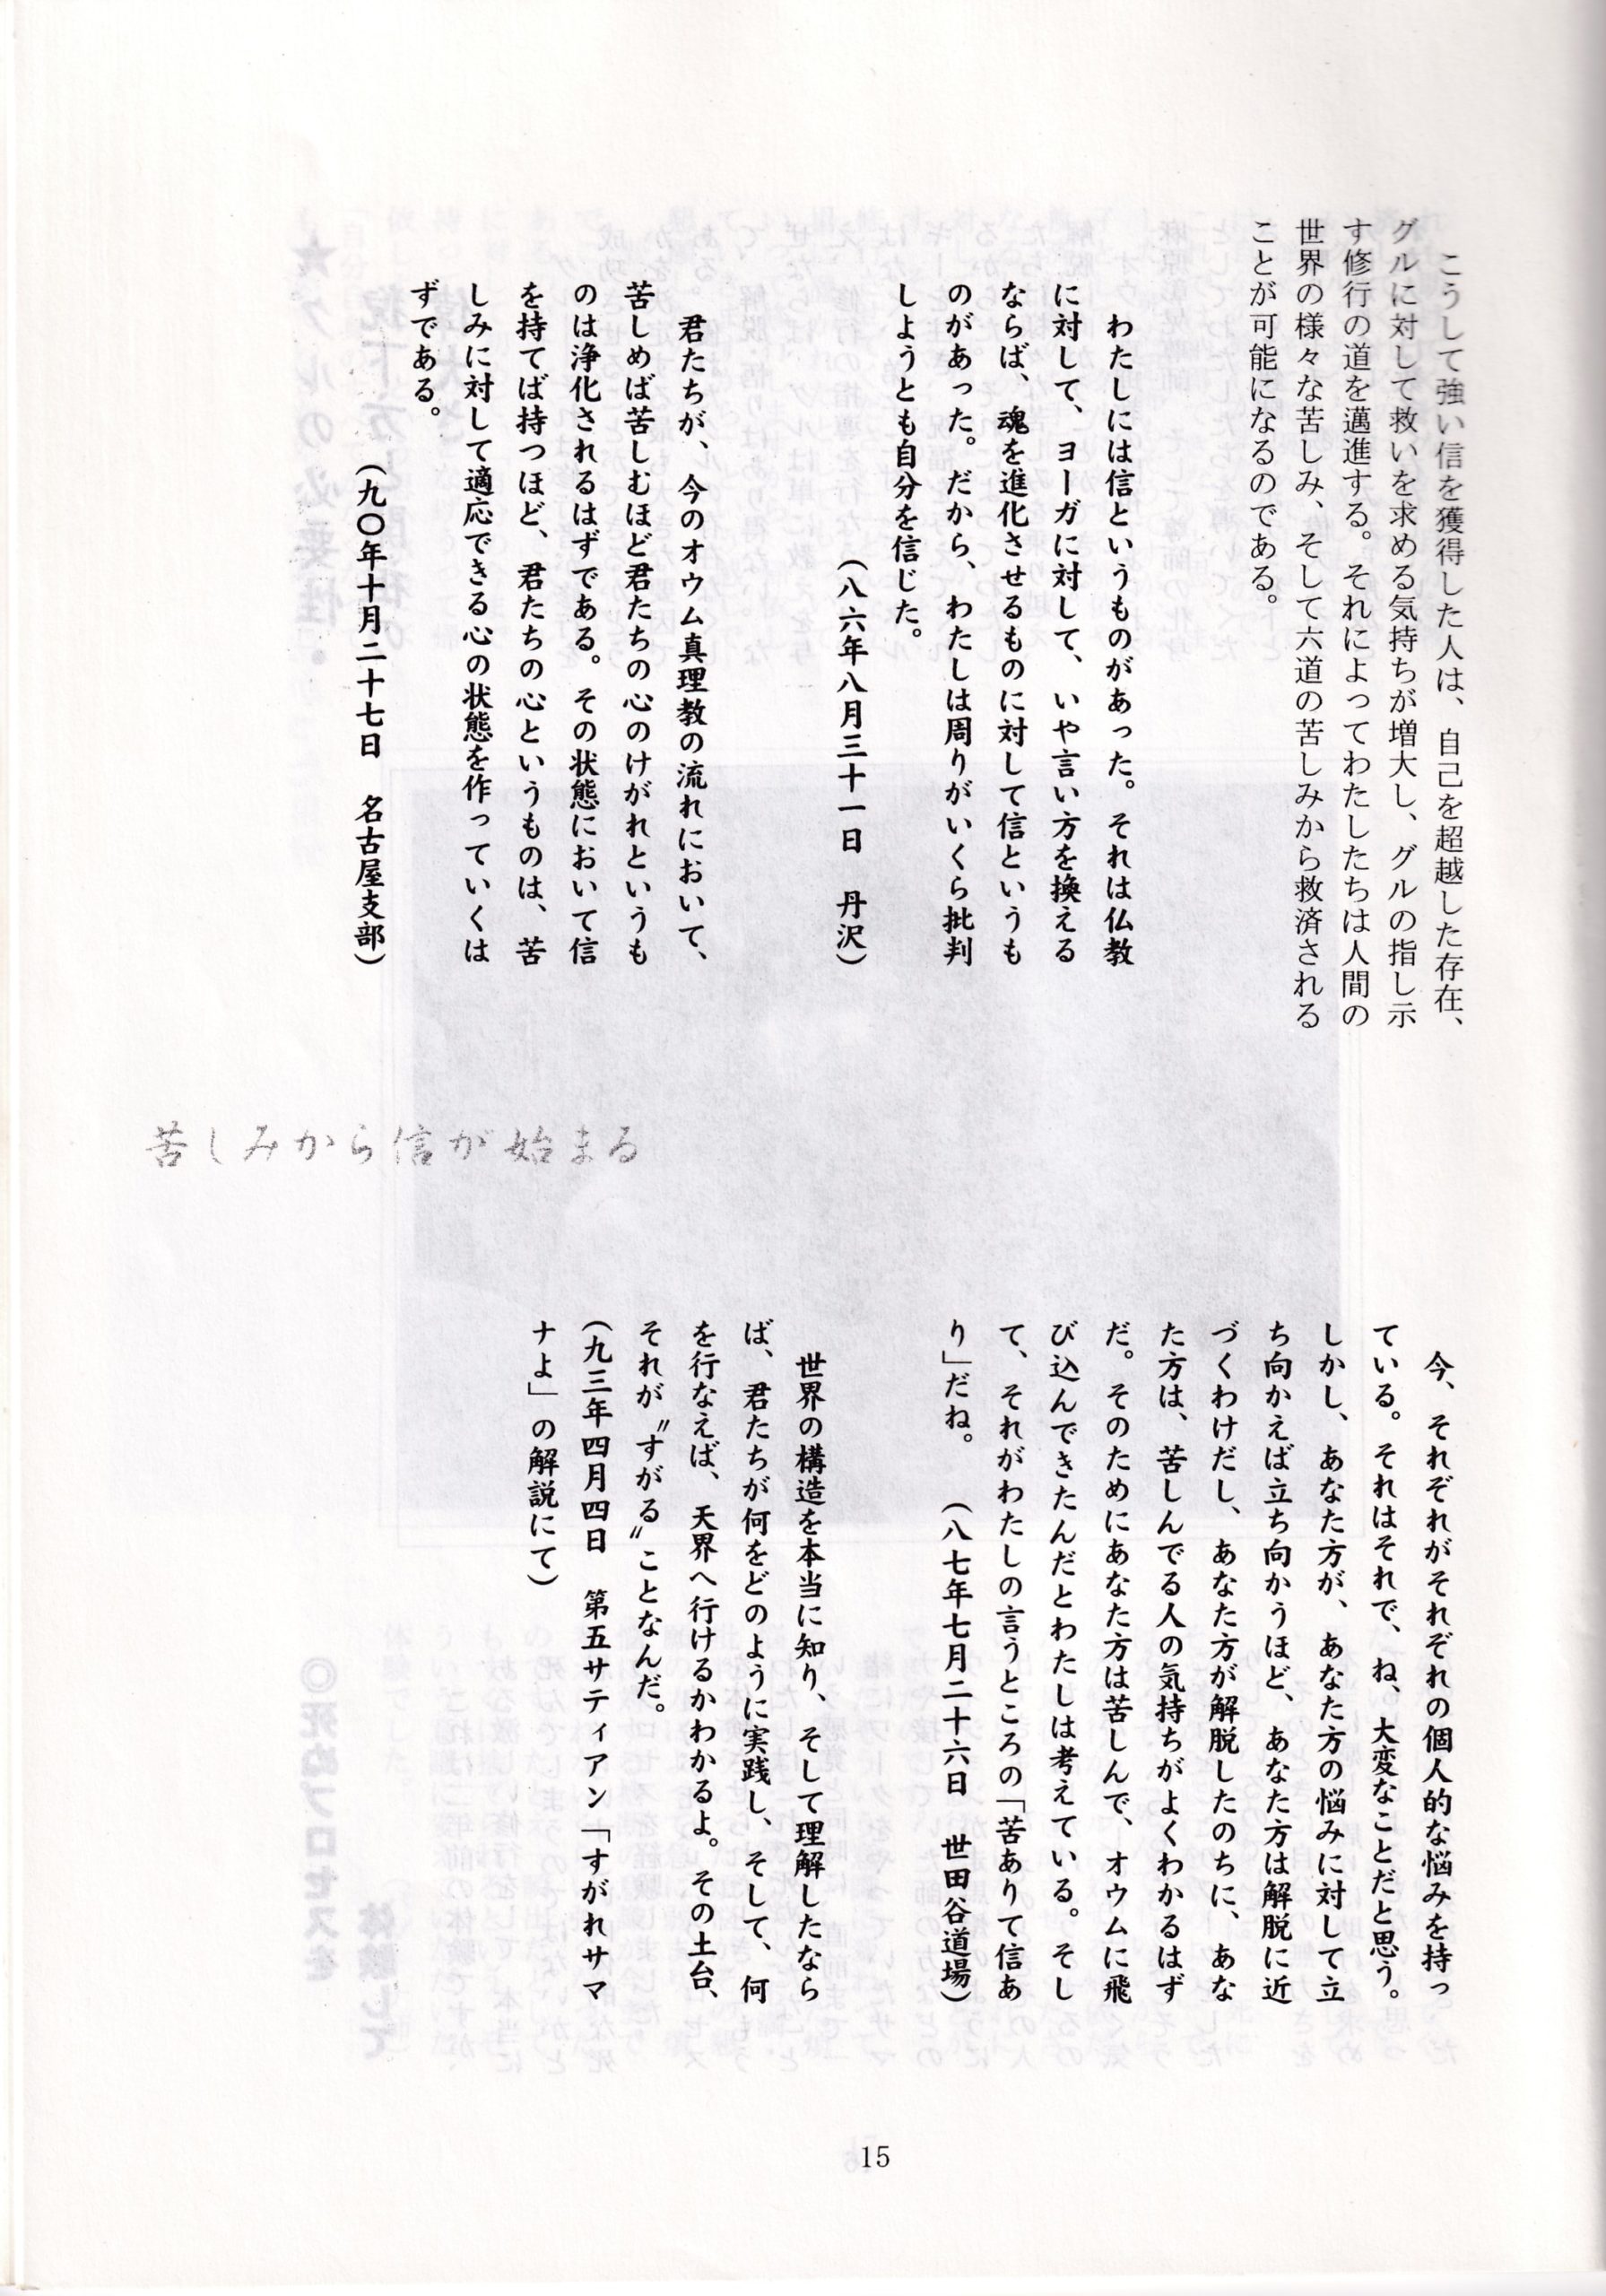 こうして強い信を獲得した人は、自己を超越した存在、
グルに対して救いを求める気持ちが増大し、グルの指し示
す修行の道を邁進する。それによってわたしたちは人間の
世界の様々な苦しみ、そして六道の苦しみから救済される
ことが可能になるのである。
わたしには信というものがあった。それは仏教
に対して、ヨーガに対して、いや言い方を換える
ならば、魂を進化させるものに対して信というも
のがあった。だから、わたしは周りがいくら批判
しようとも自分を信じた。
(八六年八月三十一日 丹沢)
君たちが、今のオウム真理教の流れにおいて、
苦しめば苦しむほど君たちの心のけがれというも
のは浄化されるはずである。その状態において信
を持てば持つほど、君たちの心というものは、苦
しみに対して適応できる心の状態を作っていくは
ずである。
(九〇年十月二十七日 名古屋支部)
苦しみから信が始まる
今、それぞれがそれぞれの個人的な悩みを持っ
ている。それはそれで、ね、大変なことだと思う。
しかし、あなた方が、あなた方の悩みに対して立
ち向かえば立ち向かうほど、あなた方は解脱に近
づくわけだし、あなた方が解脱したのちに、あな
た方は、苦しんでる人の気持ちがよくわかるはず
だ。そのためにあなた方は苦しんで、オウムに飛
び込んできたんだとわたしは考えている。そし
て、それがわたしの言うところの「苦ありて信あ
り」だね。 (八七年七月二十六日 世田谷道場)
世界の構造を本当に知り、そして理解したなら
ば、君たちが何をどのように実践し、そして、何
を行なえば、天界へ行けるかわかるよ。その土台、
それが〝すがる〟ことなんだ。
(九三年四月四日 第五サティアン「すがれサマ
ナよ」の解説にて)
15